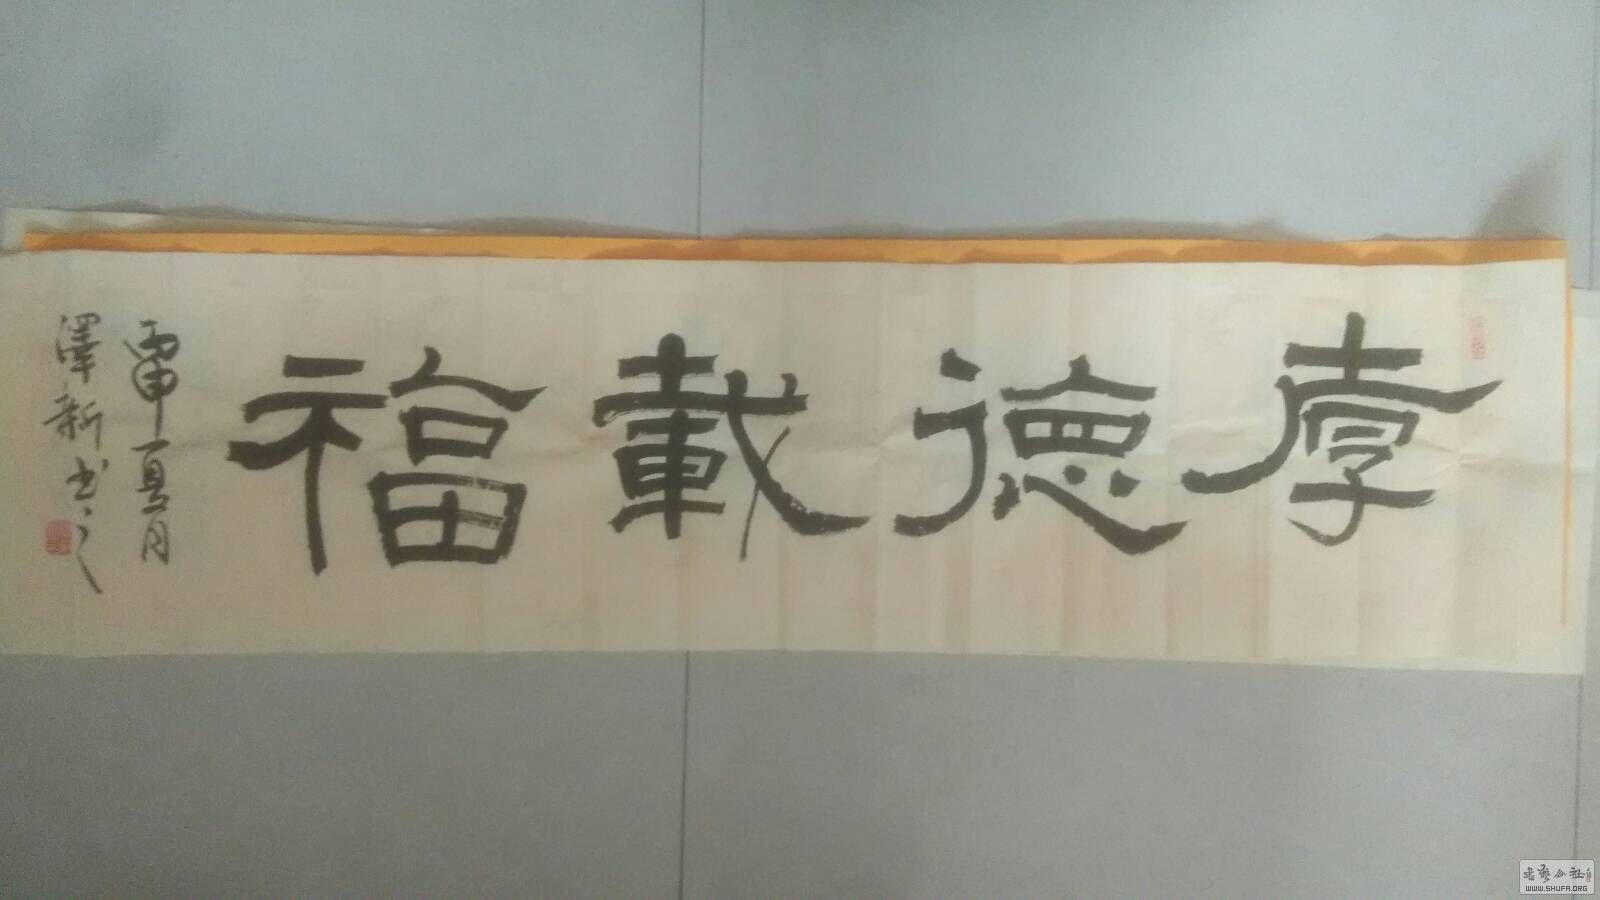 厚德載福
丙申夏月
澤新书之
書藝公社
WWW.SHUFA.ORG